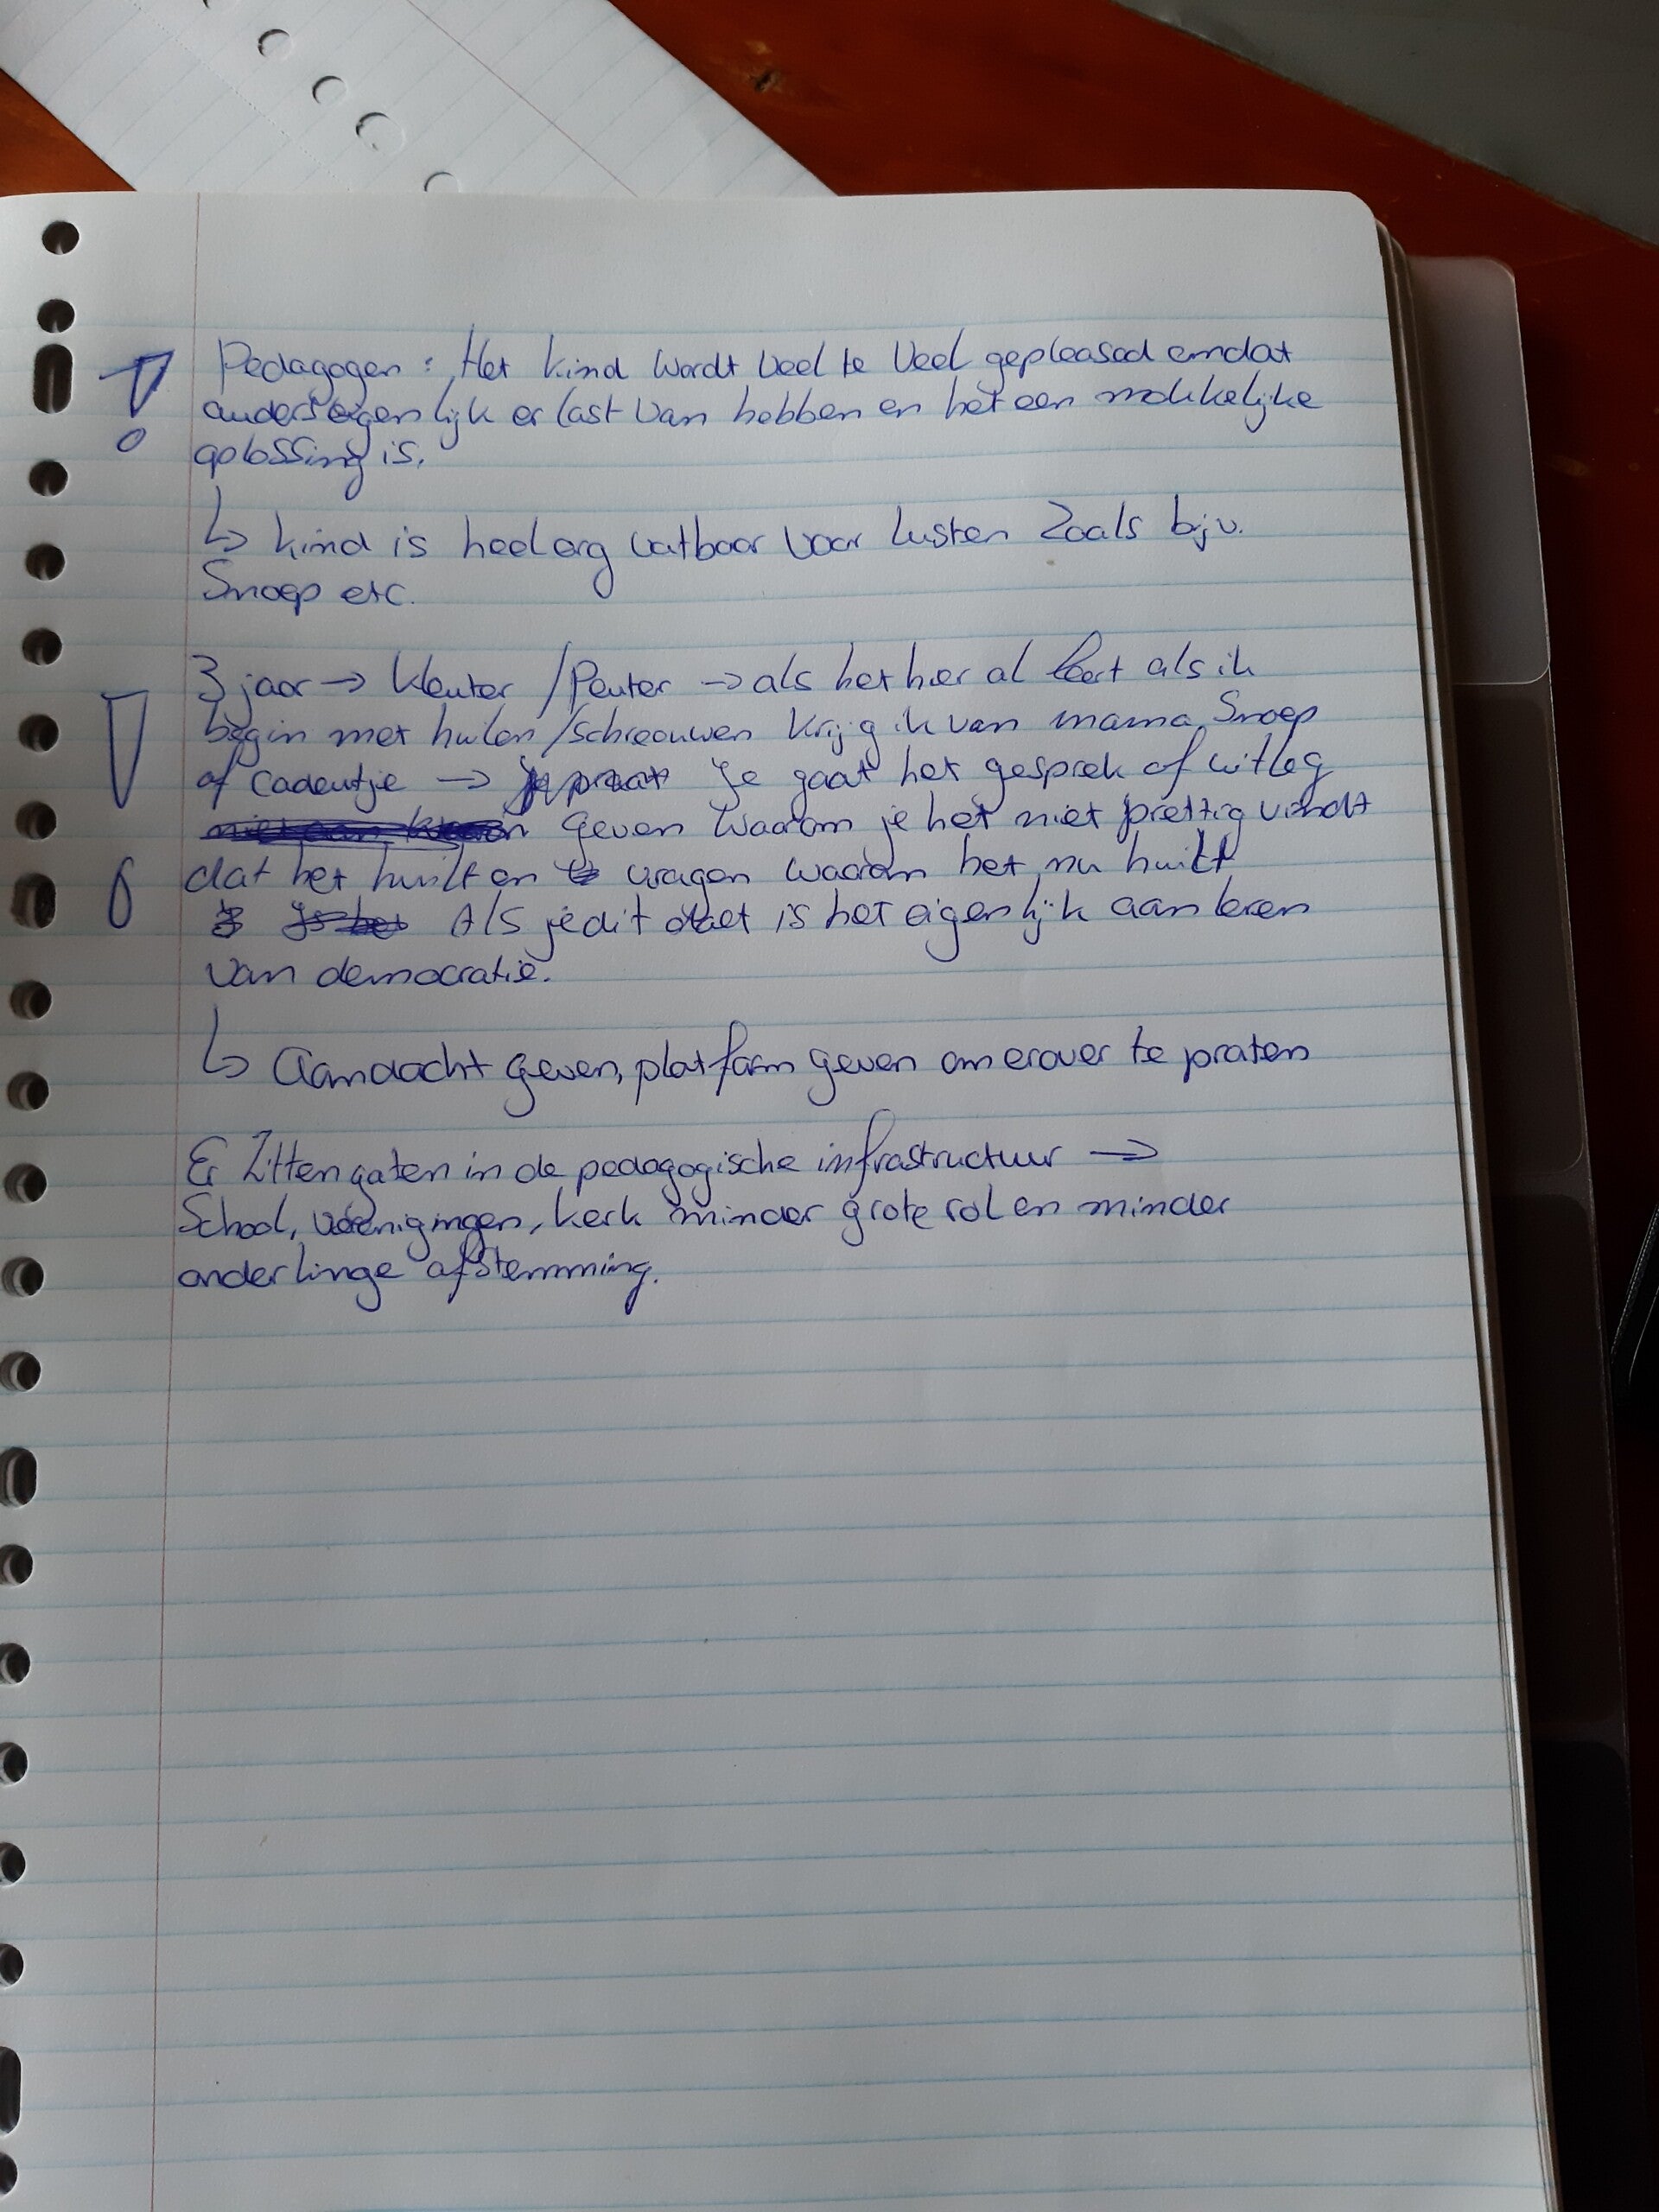 ! Pedagogen: Het kind wordt veel te veel gepleased omdat
ouders eigenlijk er last van hebben en het een makkelijke
oplossing is.
↳ kind is heel erg vatbaar voor lusten zoals bijv.
Snoep etc.
! 3 jaar → kleuter / Peuter → als het hier al leert als ik
begin met huilen/schreeuwen krijg ik van mama snoep
of cadeautje → Je gaat het gesprek of uitleg
geven waarom je het niet prettig vindt
dat het huilt en vragen waarom het nu huilt
Als je dit doet is het eigenlijk aan leren
van democratie.
↳ Aandacht geven, platform geven om erover te praten
Er zitten gaten in de pedagogische infrastructuur →
School, verenigingen, kerk minder grote rol en minder
onderlinge afstemming.